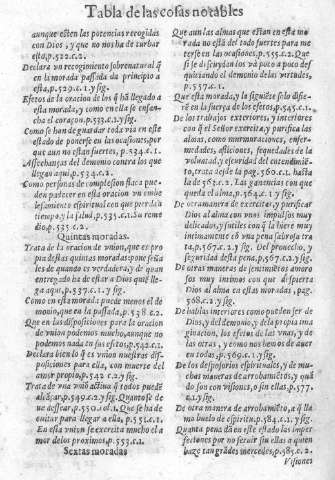 Tabla de las cosas notables
aunque esten las potencias recogidas
con Dios, y que no nos ha de turbar
esta, p.522.c.2.
Declara un recogimiento sobrenatural q̃
en la morada passada da principio a
esta, p.529.c.1.y sig.
Efetos de la oracion de los q̃ hã llegado a
esta morada, y como en ella se ensan-
cha el coraçon, p.533.c.1.
Como se han de guardar toda via en este
estado de ponerse en las ocasiones, por
que aun no estan fuertes, p.534.c.1.
Assechanças del demonio contra los que
llegan aqui, p.534.c.2.
Como personas de complesion flaca pue-
den padecer en esta oracion un embe-
lesamiento espiritual en que pierden
tiempo, y la salud, p.535.c.1. Su reme
dio, p.535.c.2.
Quintas moradas.
Trata de la oracion de union, que es pro
pia destas quintas moradas: pone seña
les de quando es verdadera, y de quan
entregado ha de estar a Dios quiẽ lle-
ga aqui, p.537.c.1.y sig.
Como en esta morada puede menos el de
monio, que en la passada, p.538.c.2.
Que en las disposiciones para la oracion
de union podemos mucho, aunque no
podemos nada en sus efetos, p.542.c.1.
Declara bien lo q̃ es union nuestras dis-
posiciones para ella, con muerte del
amor propio, p.542.c.2.y sig.
Trata de una uniõ activa q̃ todos puedẽ
alcãçar, p.549.c.2.y sig. Quanto se de
ve dessear, p.550.c.1. Que se ha de
quitar para llegar a ella, p.551.c.1.
En esta union se exercita mucho el a
mor de los proximos, p.553.c.1.
Sextas moradas
Que aun las almas que estan en esta mo
rada no està del todo fuertes para me
terse en las ocasiones, p.555.c.2. Que
si se descuydan los và poco a poco des
quiziando el demonio de las virtudes,
p.557.c.1.
Que esta morada, y la siguiẽte solo difie-
rẽ en la fuerça de los efetos, p.545.c.1.
De los trabajos exteriores, y interiores
con q̃ el Señor exercita, y purifica las
almas, como murmuraciones, enfer-
medades, aflicciones, sequedades de la
voluntad, y escuridad del entendimiẽ-
to, trata desde la pag.560.c.1. hasta
la de 562.c.2. Las ganancias con que
queda el alma, p.564.c.1.y sig.
De otra manera de exercitar, y purificar
Dios al alma con unos impulsos muy
delicados, y sutiles con q̃ la hiere muy
intimamente cõ una pena sabrosa tra
ta, p.567.c.2.y sig. Del provecho, y
seguridad desta pena, p.567.c.2.y sig.
De otras maneras de sentimiẽtos amoro
sos muy intimos con que dispierta
Dios al alma en estas moradas, pag.
568.c.2.y sig.
De hablas interiores como pueden ser de
Dios, y del demonio, y de la propia ima
ginacion, los efetos de las unas, y de
las otras, y como nos hemos de auer
en todas, p.569.c.1.y sig.
De los desposorios espirituales, y de mu-
chas maneras de arrobamiẽtos, y quã
do son con visiones, o sin ellas, p.577.
c.1.y sig.
De otra manera de arrobamiẽto, a q̃ lla
mò buelo de espiritu, p.584.c.1.y sig.
Quanta pena dà en este estado las imper
fecciones por no servir sin ellas a quien
haze tan grãdes mercedes, p.585.c.2.
Visiones